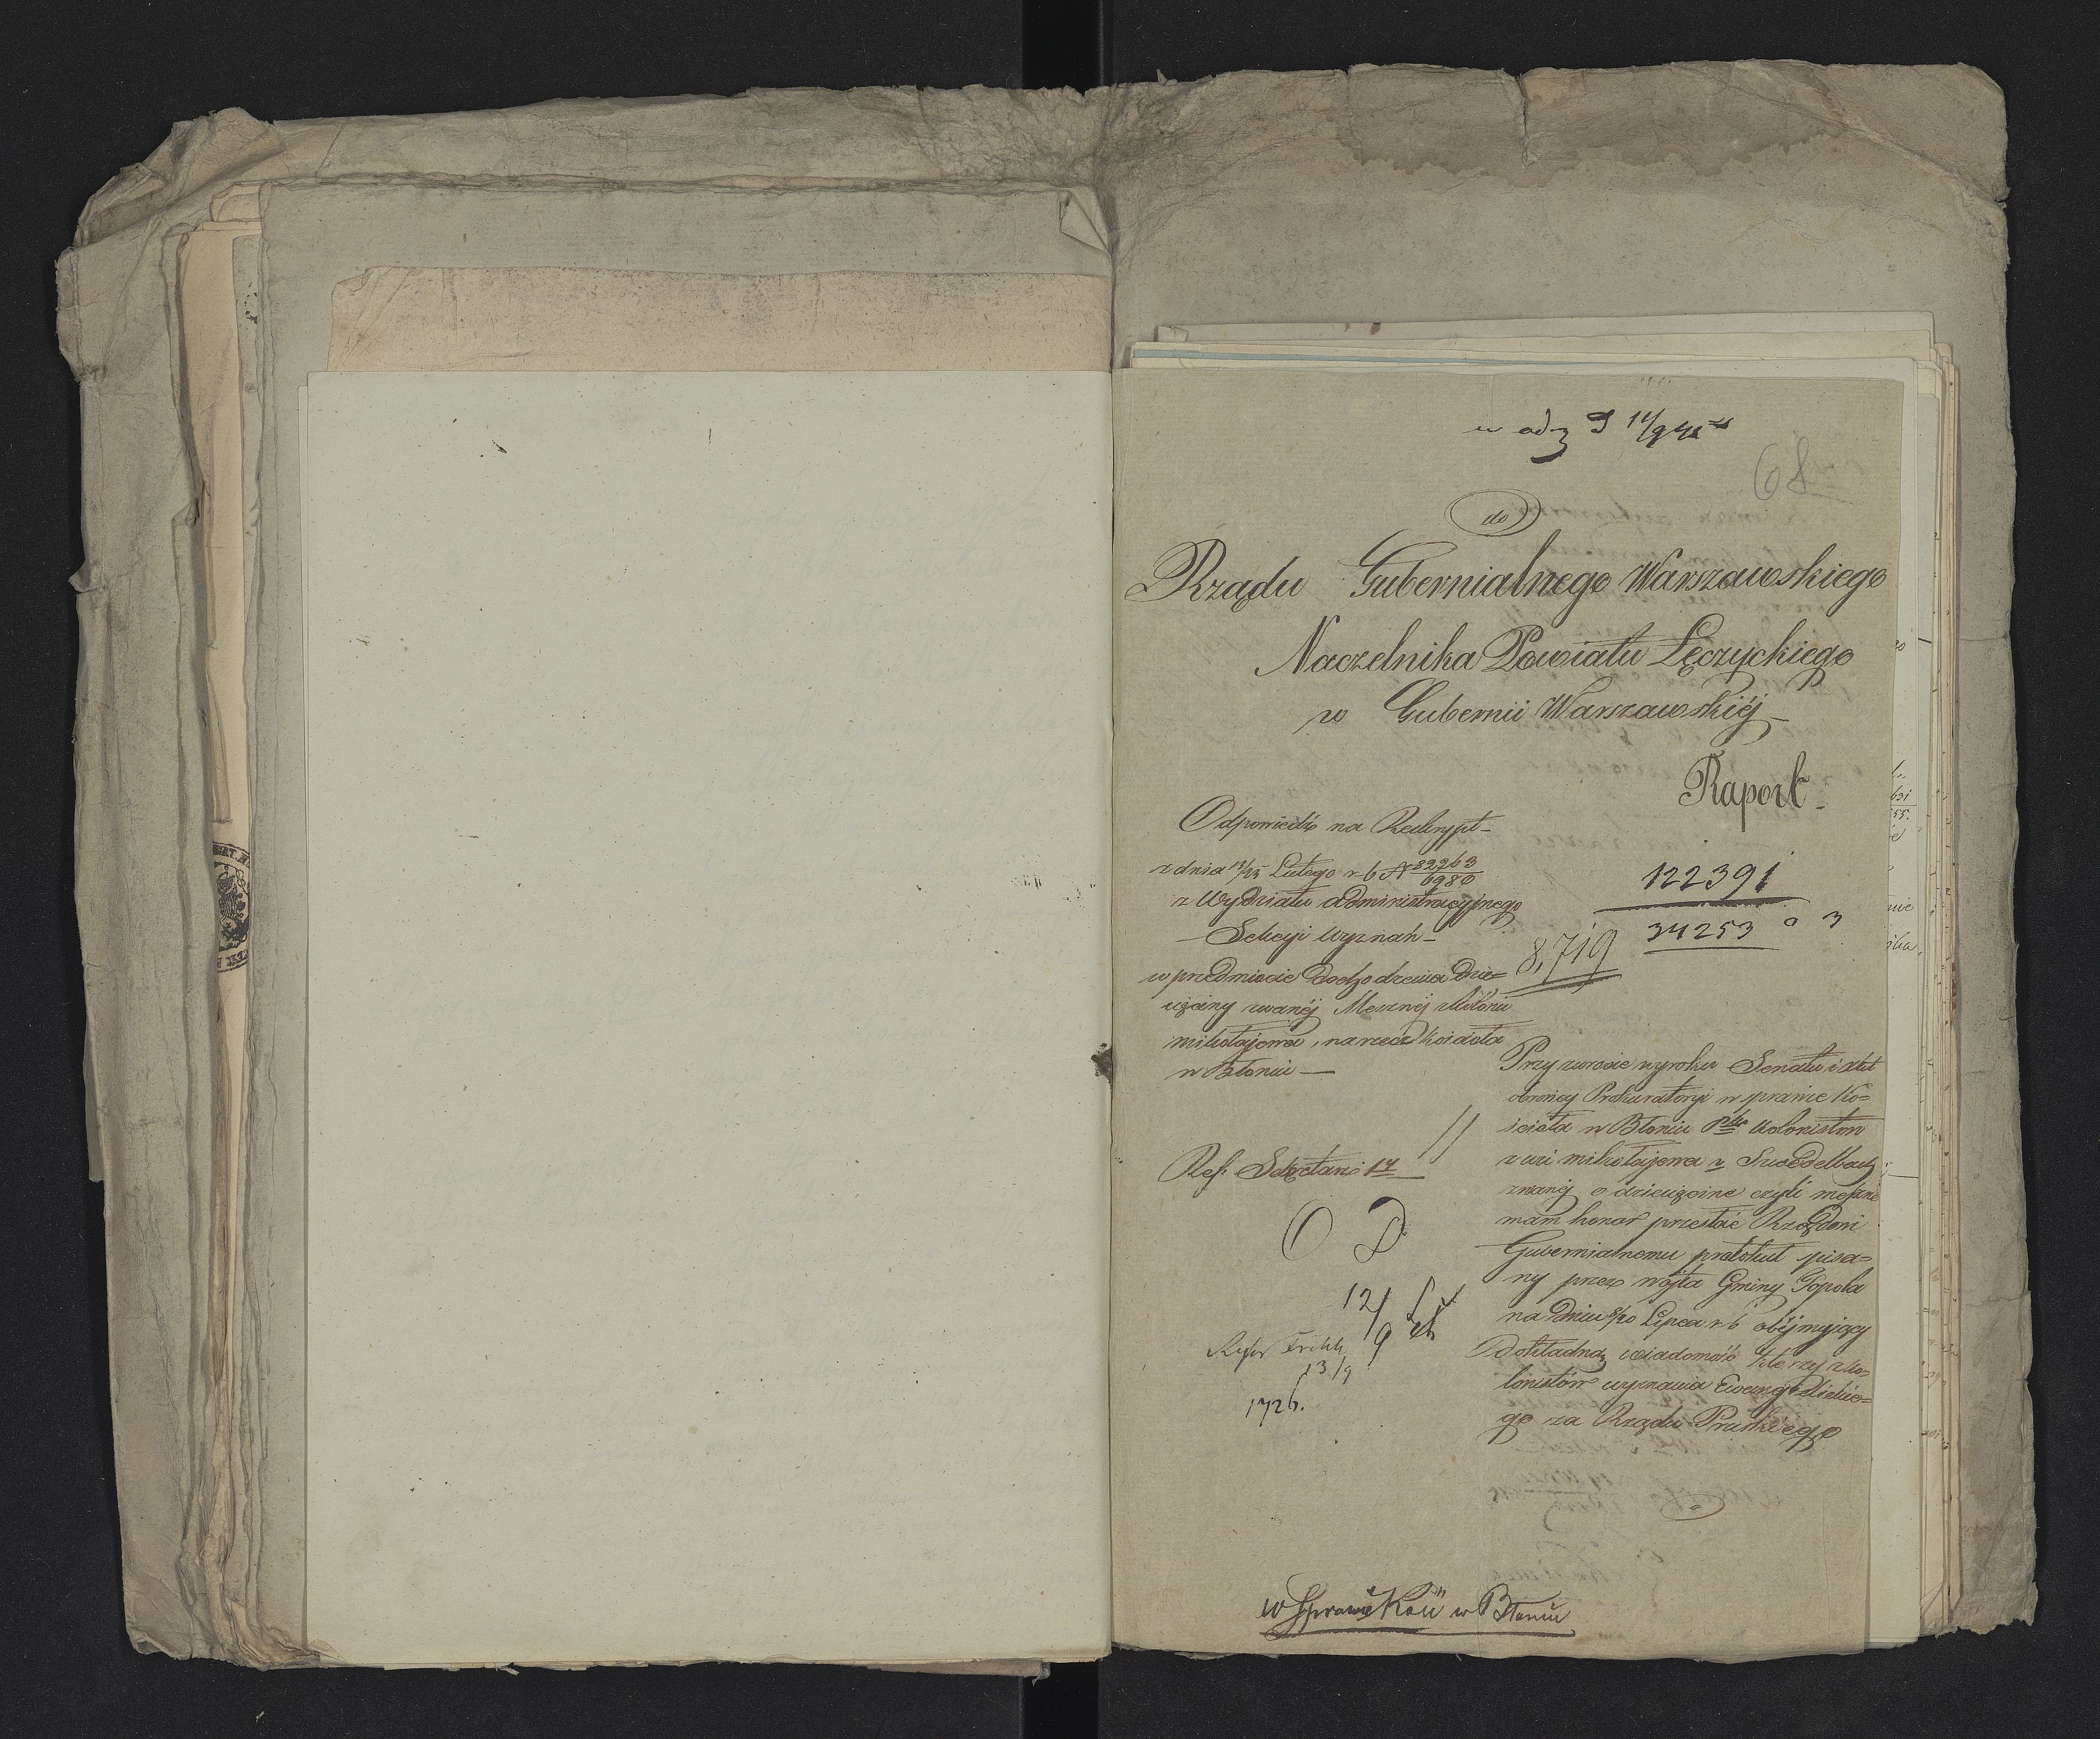 68
do
Rządu Gubernialnego Warszawskiego
Naczelnika Powiatu Łęczyckiego
w Gubernii Warszawskiéj
Raport
Odpowiedź na Reskrypt
z dnia 13/25 Lutego r b N 82263/6980
z Wydziału Administracyjnego
Sekcyi Wyznań
w przedmiocie dochodzenia dzie=
sięciny zwanéj Mesznéj z Kolonii
Mikołajewa, na rzecz kościoła
w Błoniu
122391
34253 3
8,719
Przy zwrocie wyroku Senatu i akt
obrońcy Prokuratoryi w sprawie Ko=
ścioła w Błoniu Kolonistom
z wsi Mikołajewa v Swedelbach
zwanéj o dziesięcinę czyli meszne
mam honor przesłać Rządowi
Gubernialnemu protokuł spisa=
ny przez wójta Gminy Topola
na dniu 8/20 Lipca r b obéjmujący
dokładną wiadomość którzy z ko=
lonistów wyznania Ewangelickie=
go za Rządu Pruskiego
Ref: Sekretarz 17
12/9
13/9
1726.
w Sprawie Koś w Błoniu